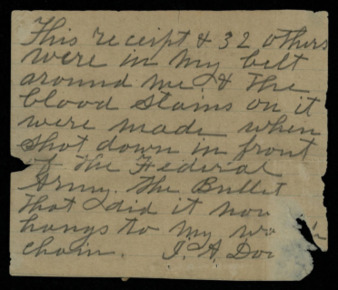 This receipt & 32 others
were in my belt
around me & the
blood stains on it
were made when
shot down in front
of the Federal
Army. The Bullet
that did it now
hangs to my
chain. J. A.